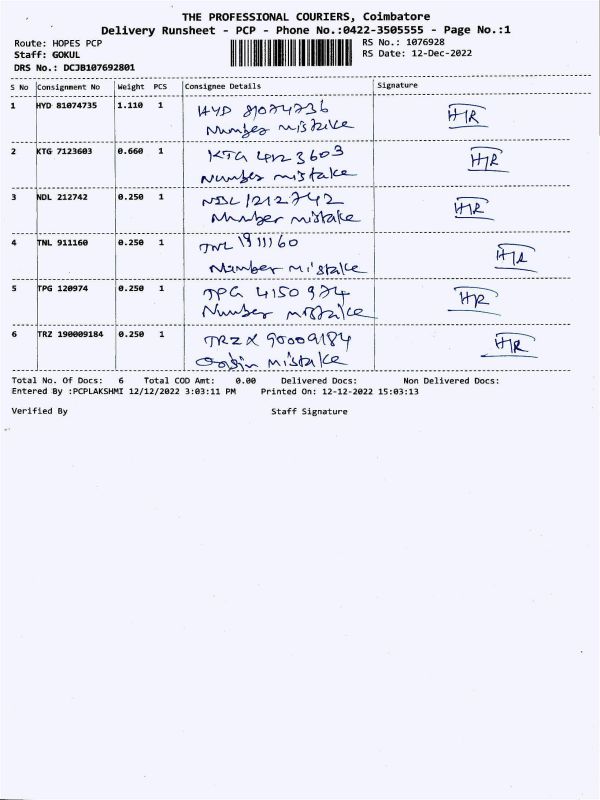 THE PROFESSIONAL COURIERS, Coimbatore
Delivery Runsheet - PCP - Phone No.:0422-3505555 - Page No.:1
Route: HOPES PCP RS No.: 1076928
Staff: GOKUL RS Date: 12-Dec-2022
DRS No.: DCJB107692801
S No Consignment No Weight PCS Consignee Details Signature
1 HYD 81074735 1.110 1 HYD 81074736 HR
Number mistake
2 KTG 7123603 0.660 1 KTG 4123603 HR
Number mistake
3 NDL 212742 0.250 1 NDL 1212742 HR
Number mistake
4 TNL 911160 0.250 1 TNL 1911160 HR
Number mistake
5 TPG 120974 0.250 1 TPG 4150974 HR
Number mistake
6 TRZ 190009184 0.250 1 TRZ X 90009184 HR
mistake
Total No. Of Docs: 6 Total COD Amt: 0.00 Delivered Docs: Non Delivered Docs:
Entered By :PCPLAKSHMI 12/12/2022 3:03:11 PM Printed On: 12-12-2022 15:03:13
Verified By Staff Signature